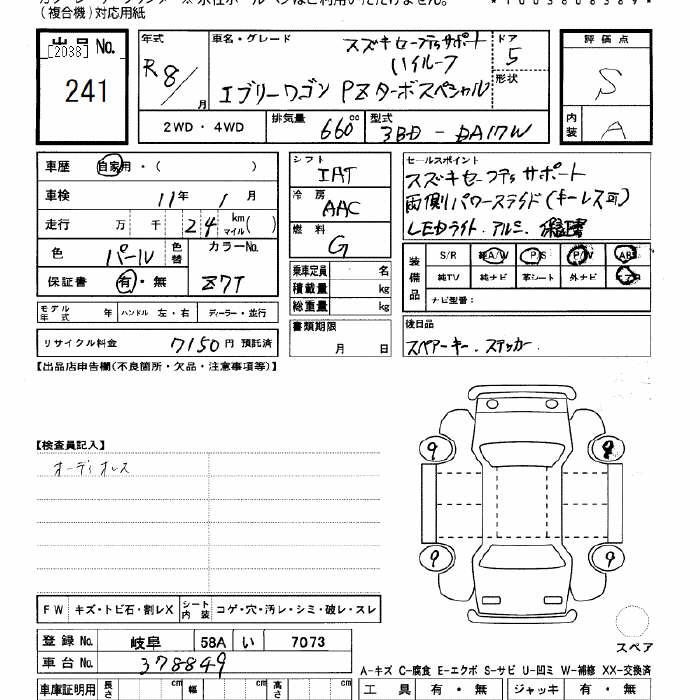 (複合機)対応用紙
*1003608369*
出品No.
[2038]
241
年式 R8/ 月
車名・グレード スズキセーフティサポート
ハイルーフ
エブリーワゴン PZターボスペシャル
ドア 5
形状
評価点 S
内装 A
2WD・4WD 排気量 660cc 型式 3BD-DA17W
車歴 自家用・( )
車検 11年 1月
走行 万 千 24 km マイル( )
色 パール 色替 カラーNo.
保証書 有・無 Z7T
モデル年式 年 ハンドル 左・右 ディーラー・並行
リサイクル料金 7150円 預託済
シフト IAT
冷房 AAC
燃料 G
乗車定員 名
積載量 kg
総重量 kg
書類期限
月 日
セールスポイント
スズキセーフティサポート
両側パワースライド(キーレス可)
LEDライト.アルミ.保証書
装備品 S/R 純A/W P/S P/W AB
純TV 純ナビ 革シート 外ナビ エアB
ナビ型番:
後日品
スペアーキー.ステッカー
【出品店申告欄(不良箇所・欠品・注意事項等)】
【検査員記入】
オーディオレス
9 9
9 9
スペア
FW キズ・トビ石・割レX シート内装 コゲ・穴・汚レ・シミ・破レ・スレ
登録No. 岐阜 58A い 7073
車台No. 378849
A-キズ C-腐食 E-エクボ S-サビ U-凹ミ W-補修 XX-交換済
車庫証明用 長さ cm 幅 cm 高さ cm
工具 有・無 ジャッキ 有・無